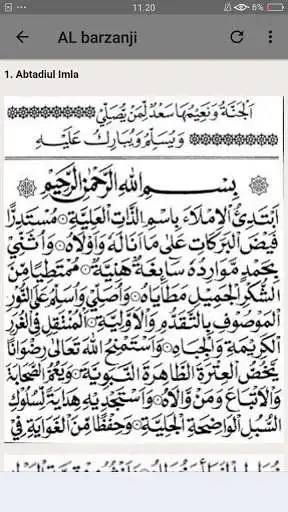 11.20
6%
AL barzanji
1. Abtadiul Imla
اَلْجَنَّةُ وَنَعِيْمُهَا سَعْدٌ لِّمَنْ يُّصَلِّيْ
وَيُسَلِّمُ وَيُبَارِكُ عَلَيْهِ
بِسْمِ اللهِ الرَّحْمٰنِ الرَّحِيْمِ
اَبْتَدِئُ الْاِمْلَاءَ بِاسْمِ الذَّاتِ الْعَلِيَّةِ مُسْتَدِرًّا
فَيْضَ الْبَرَكَاتِ عَلٰى مَا اَنَالَهُ وَاَوْلَاهُ وَاُثَنِّيْ
بِحَمْدٍ مَّوَارِدُهُ سَآئِغَةٌ هَنِيَّةٌ مُمْتَطِيًا مِّنَ
الشُّكْرِ الْجَمِيْلِ مَطَايَاهُ وَاُصَلِّيْ وَاُسَلِّمُ عَلَى النُّوْرِ
الْمَوْصُوْفِ بِالتَّقَدُّمِ وَالْاَوَّلِيَّةِ الْمُنْتَقِلِ فِى الْغُرَرِ
الْكَرِيْمَةِ وَالْجِبَاهِ وَاَسْتَمْنِحُ اللهَ تَعَالٰى رِضْوَانًا
يَّخُصُّ الْعِتْرَةَ الطَّاهِرَةَ النَّبَوِيَّةَ وَيَعُمُّ الصَّحَابَةَ
وَالْاَتْبَاعَ وَمَنْ وَّالَاهُ وَاَسْتَجْدِيْهِ هِدَايَةً لِّسُلُوْكِ
السُّبُلِ الْوَاضِحَةِ الْجَلِيَّةِ وَحِفْظًا مِّنَ الْغَوَايَةِ فِيْ